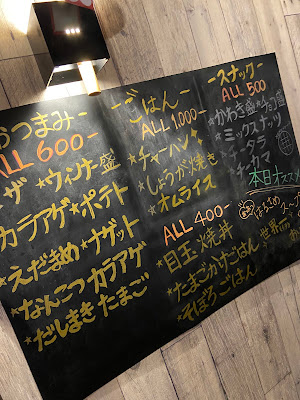 おつまみ-
ALL 600-
ザ ★ウィンナー盛
カラアゲ★ポテト
★えだまめ★ナゲット
★なんこつカラアゲ
★だしまきたまご
-ごはん-
ALL 1,000-
★チャーハン
★しょうが焼き
★オムライス
ALL 400-
★目玉焼丼
★たまごかけごはん
★そぼろごはん
-スナック-
ALL 500
★かわき盛
★ミックスナッツ
★チータラ
★チーカマ
本日オススメ
はるさめスープ